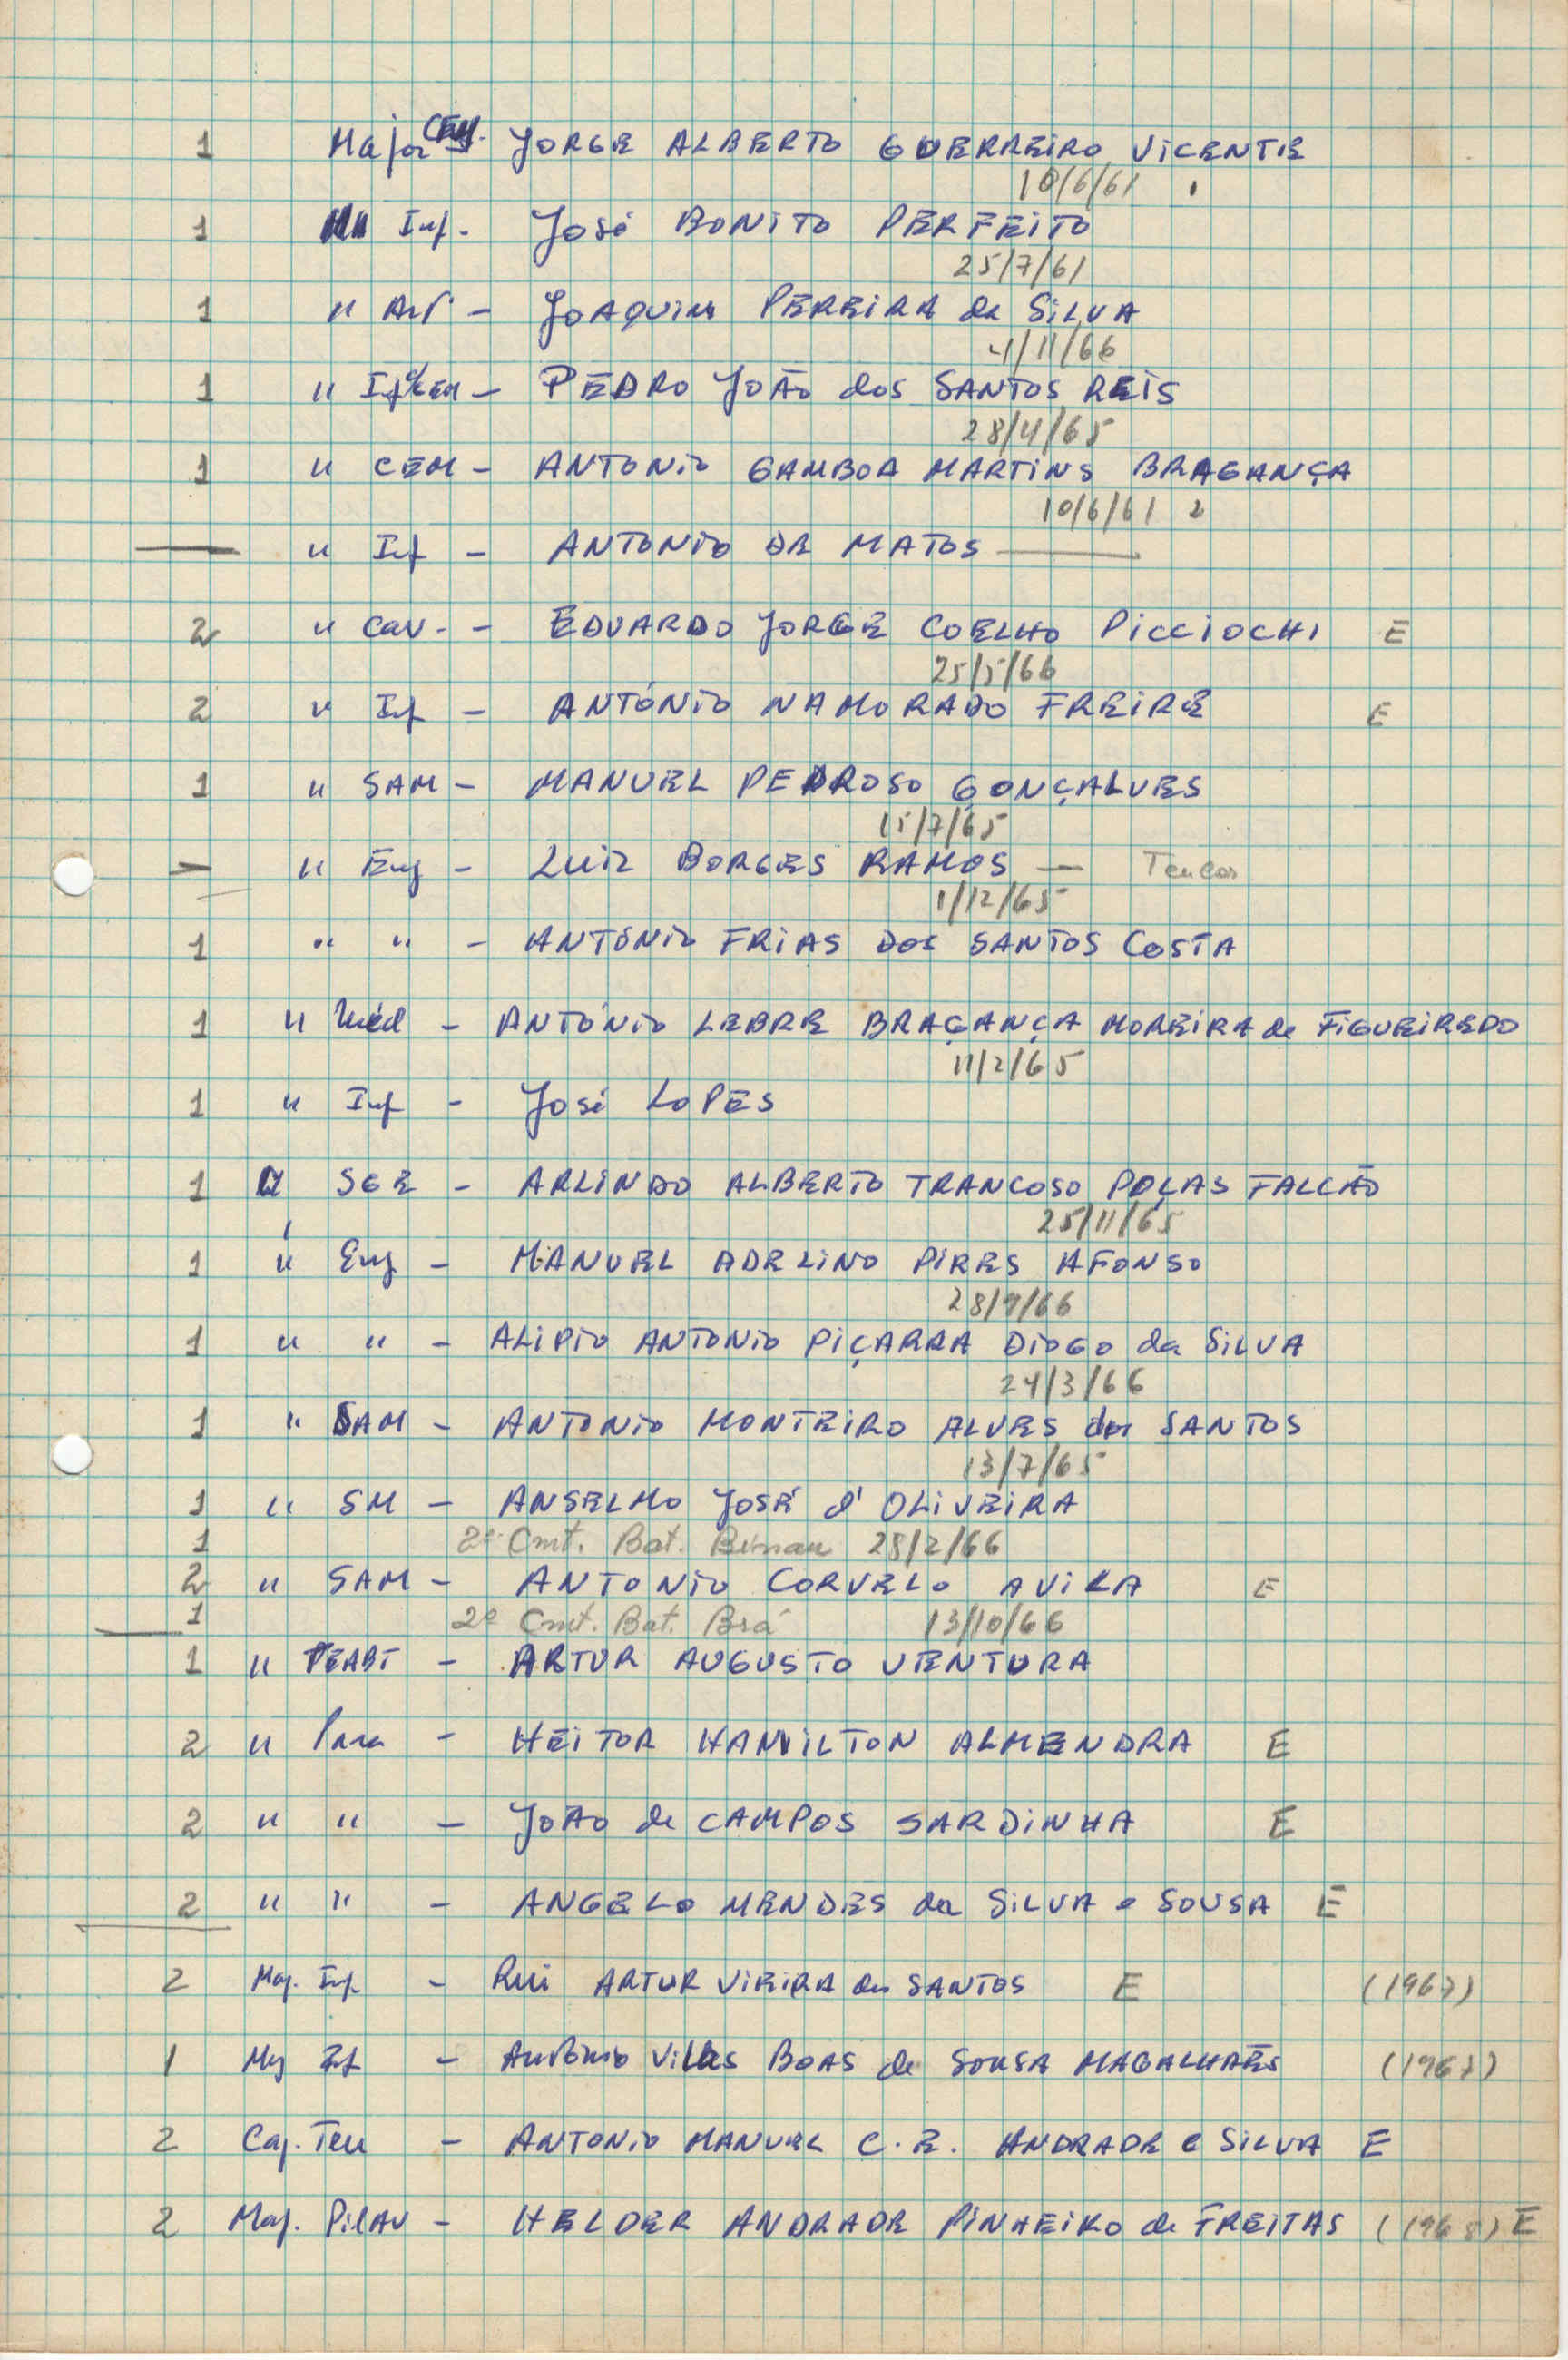 1 Major CEM. JORGE ALBERTO GUERREIRO VICENTE
10/6/61
1 " Inf. JOSÉ BONITO PERFEITO
25/7/61
1 " Art - JOAQUIM PEREIRA da SILVA
4/11/66
1 " Inf CEM - PEDRO JOÃO dos SANTOS REIS
28/4/65
1 " CEM - ANTONIO GAMBOA MARTINS BRAGANÇA
10/6/61 2
— " Inf - ANTONIO DE MATOS —
2 " Cav. - EDUARDO JORGE COELHO PICCIOCHI E
25/5/66
2 " Inf - ANTÓNIO NAMORADO FREIRE E
1 " SAM - MANUEL PEDROSO GONÇALVES
15/7/65
— " Eng - LUIZ BORGES RAMOS — Tancos
1/12/65
1 " " - ANTÓNIO FRIAS DOS SANTOS COSTA
1 " Méd - ANTÓNIO LEBRE BRAGANÇA MOREIRA de FIGUEIREDO
11/2/65
1 " Inf - JOSÉ LOPES
1 " SGE - ARLINDO ALBERTO TRANCOSO POÇAS FALCÃO
25/11/65
1 " Eng - MANUEL ADELINO PIRES AFONSO
28/9/66
1 " " - ALIPIO ANTONIO PIÇARRA DIOGO da SILVA
24/3/66
1 " SAM - ANTONIO MONTEIRO ALVES dos SANTOS
13/7/65
1 " SM - ANSELMO JOSÉ d'OLIVEIRA
1 2º Cmt. Bat. Bissau 28/2/66
2 " SAM - ANTONIO CORVELO AVILA E
1 2º Cmt. Bat. Brá 13/10/66
1 " - ARTUR AUGUSTO VENTURA
2 " Para - HEITOR HAMILTON ALMENDRA E
2 " " - JOÃO de CAMPOS SARDINHA E
2 " " - ANGELO MENDES da SILVA e SOUSA E
2 Maj. Inf - Rui ARTUR VIEIRA dos SANTOS E (1967)
1 Maj Inf - António Villas BOAS de SOUSA MAGALHÃES (1967)
2 Cap. Ten - ANTONIO MANUEL C. E. ANDRADE e SILVA E
2 Maj. PilAv - HELDER ANDRADE PINHEIRO de FREITAS (1968) E